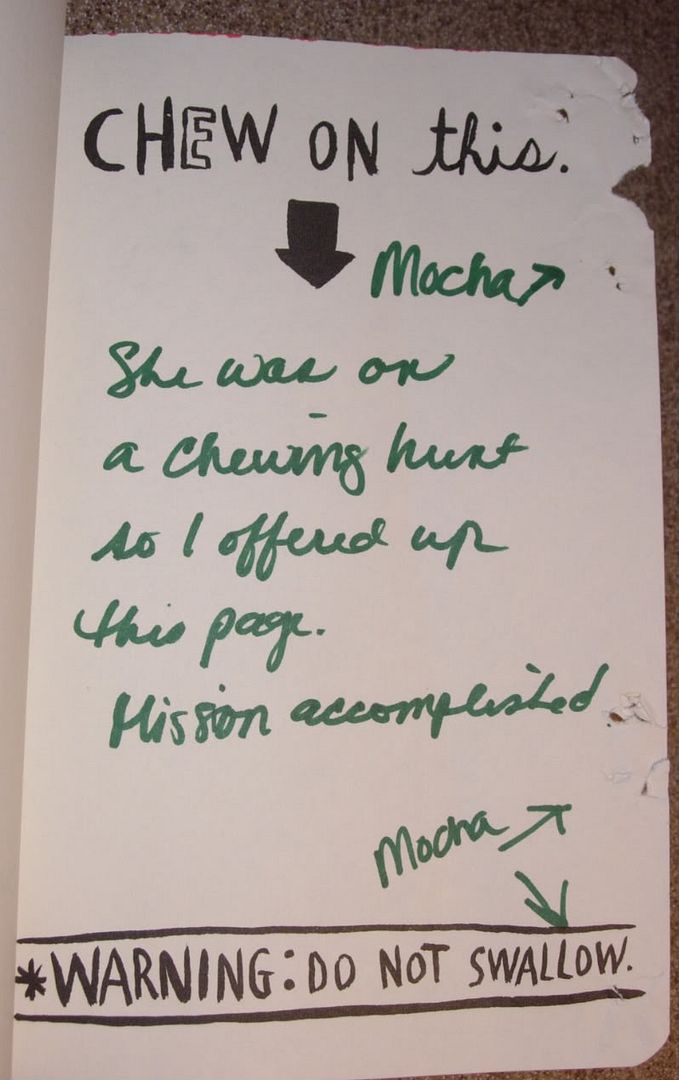 CHEW ON this.
Mocha
She was on
a chewing hunt
so I offered up
this page.
Mission accomplished
Mocha
*WARNING: DO NOT SWALLOW.